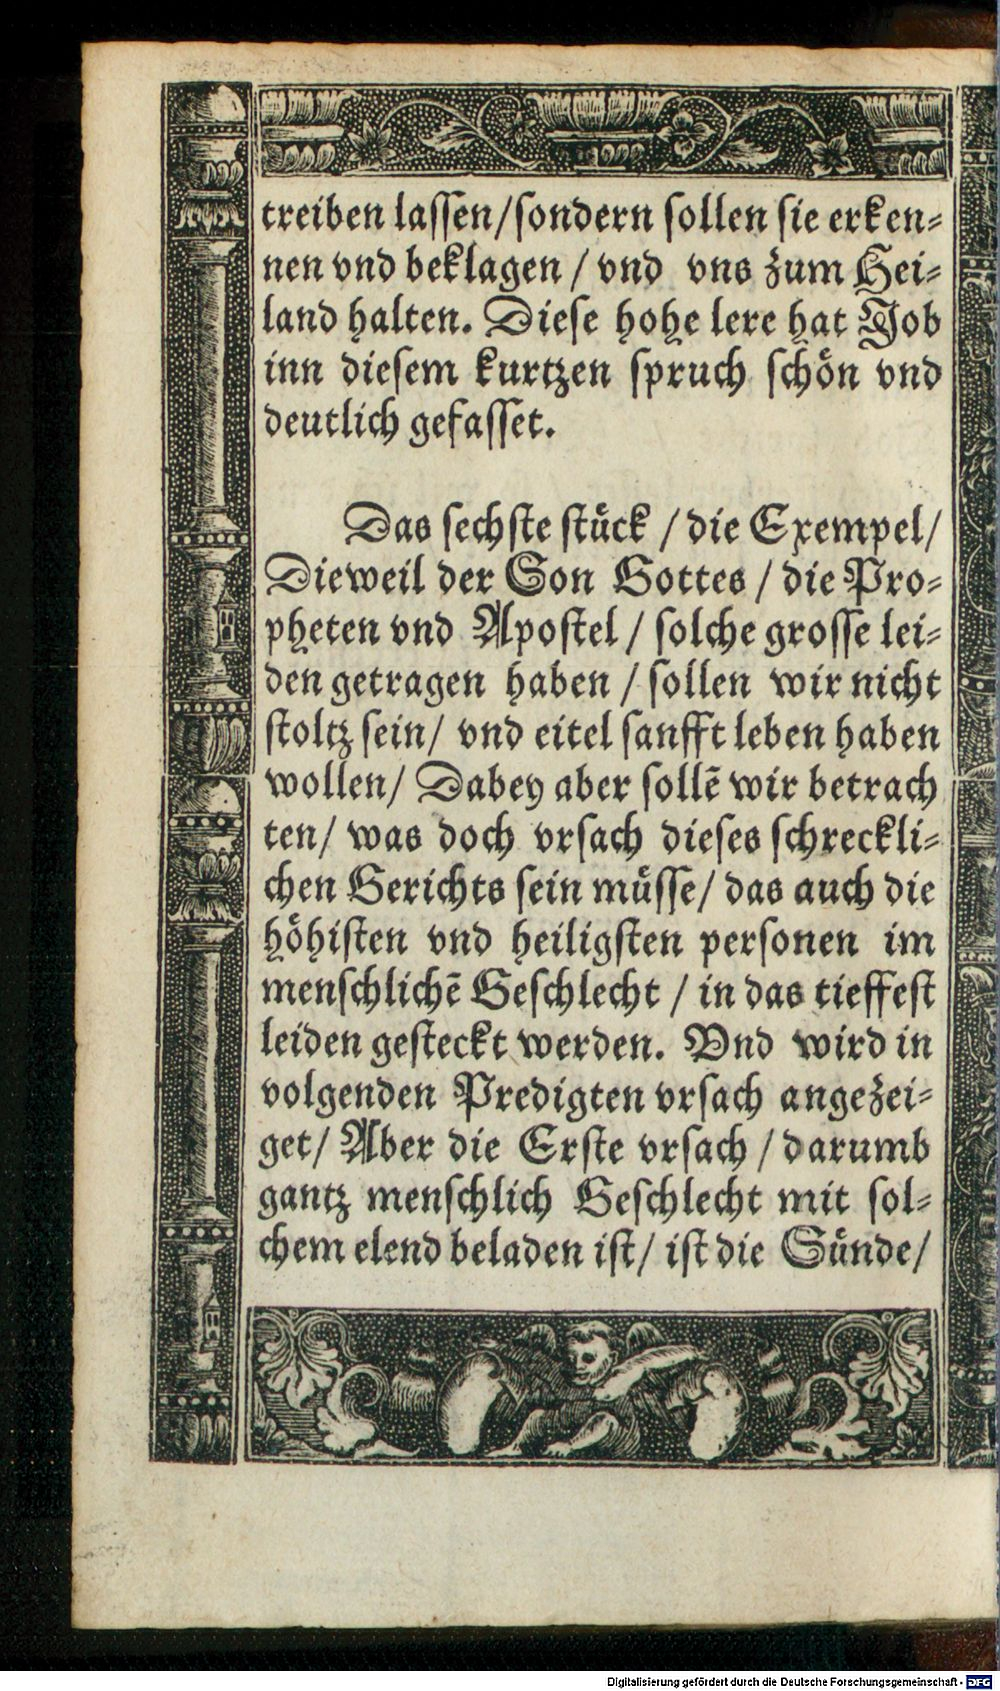 treiben lassen/sondern sollen sie erken=
nen vnd beklagen / vnd vns zum Hei=
land halten. Diese hohe lere hat Job
inn diesem kurtzen spruch schön vnd
deutlich gefasset.
Das sechste stück / die Exempel/
Dieweil der Son Gottes / die Pro=
pheten vnd Apostel / solche grosse lei=
den getragen haben / sollen wir nicht
stoltz sein/ vnd eitel sanfft leben haben
wollen/ Dabey aber sollē wir betrach
ten/ was doch vrsach dieses schreckli=
chen Gerichts sein müsse/ das auch die
höhisten vnd heiligsten personen im
menschlichē Geschlecht / in das tieffest
leiden gesteckt werden. Vnd wird in
volgenden Predigten vrsach angezei=
get/ Aber die Erste vrsach / darumb
gantz menschlich Geschlecht mit sol=
chem elend beladen ist/ ist die Sünde/
Digitalisierung gefördert durch die Deutsche Forschungsgemeinschaft - DFG